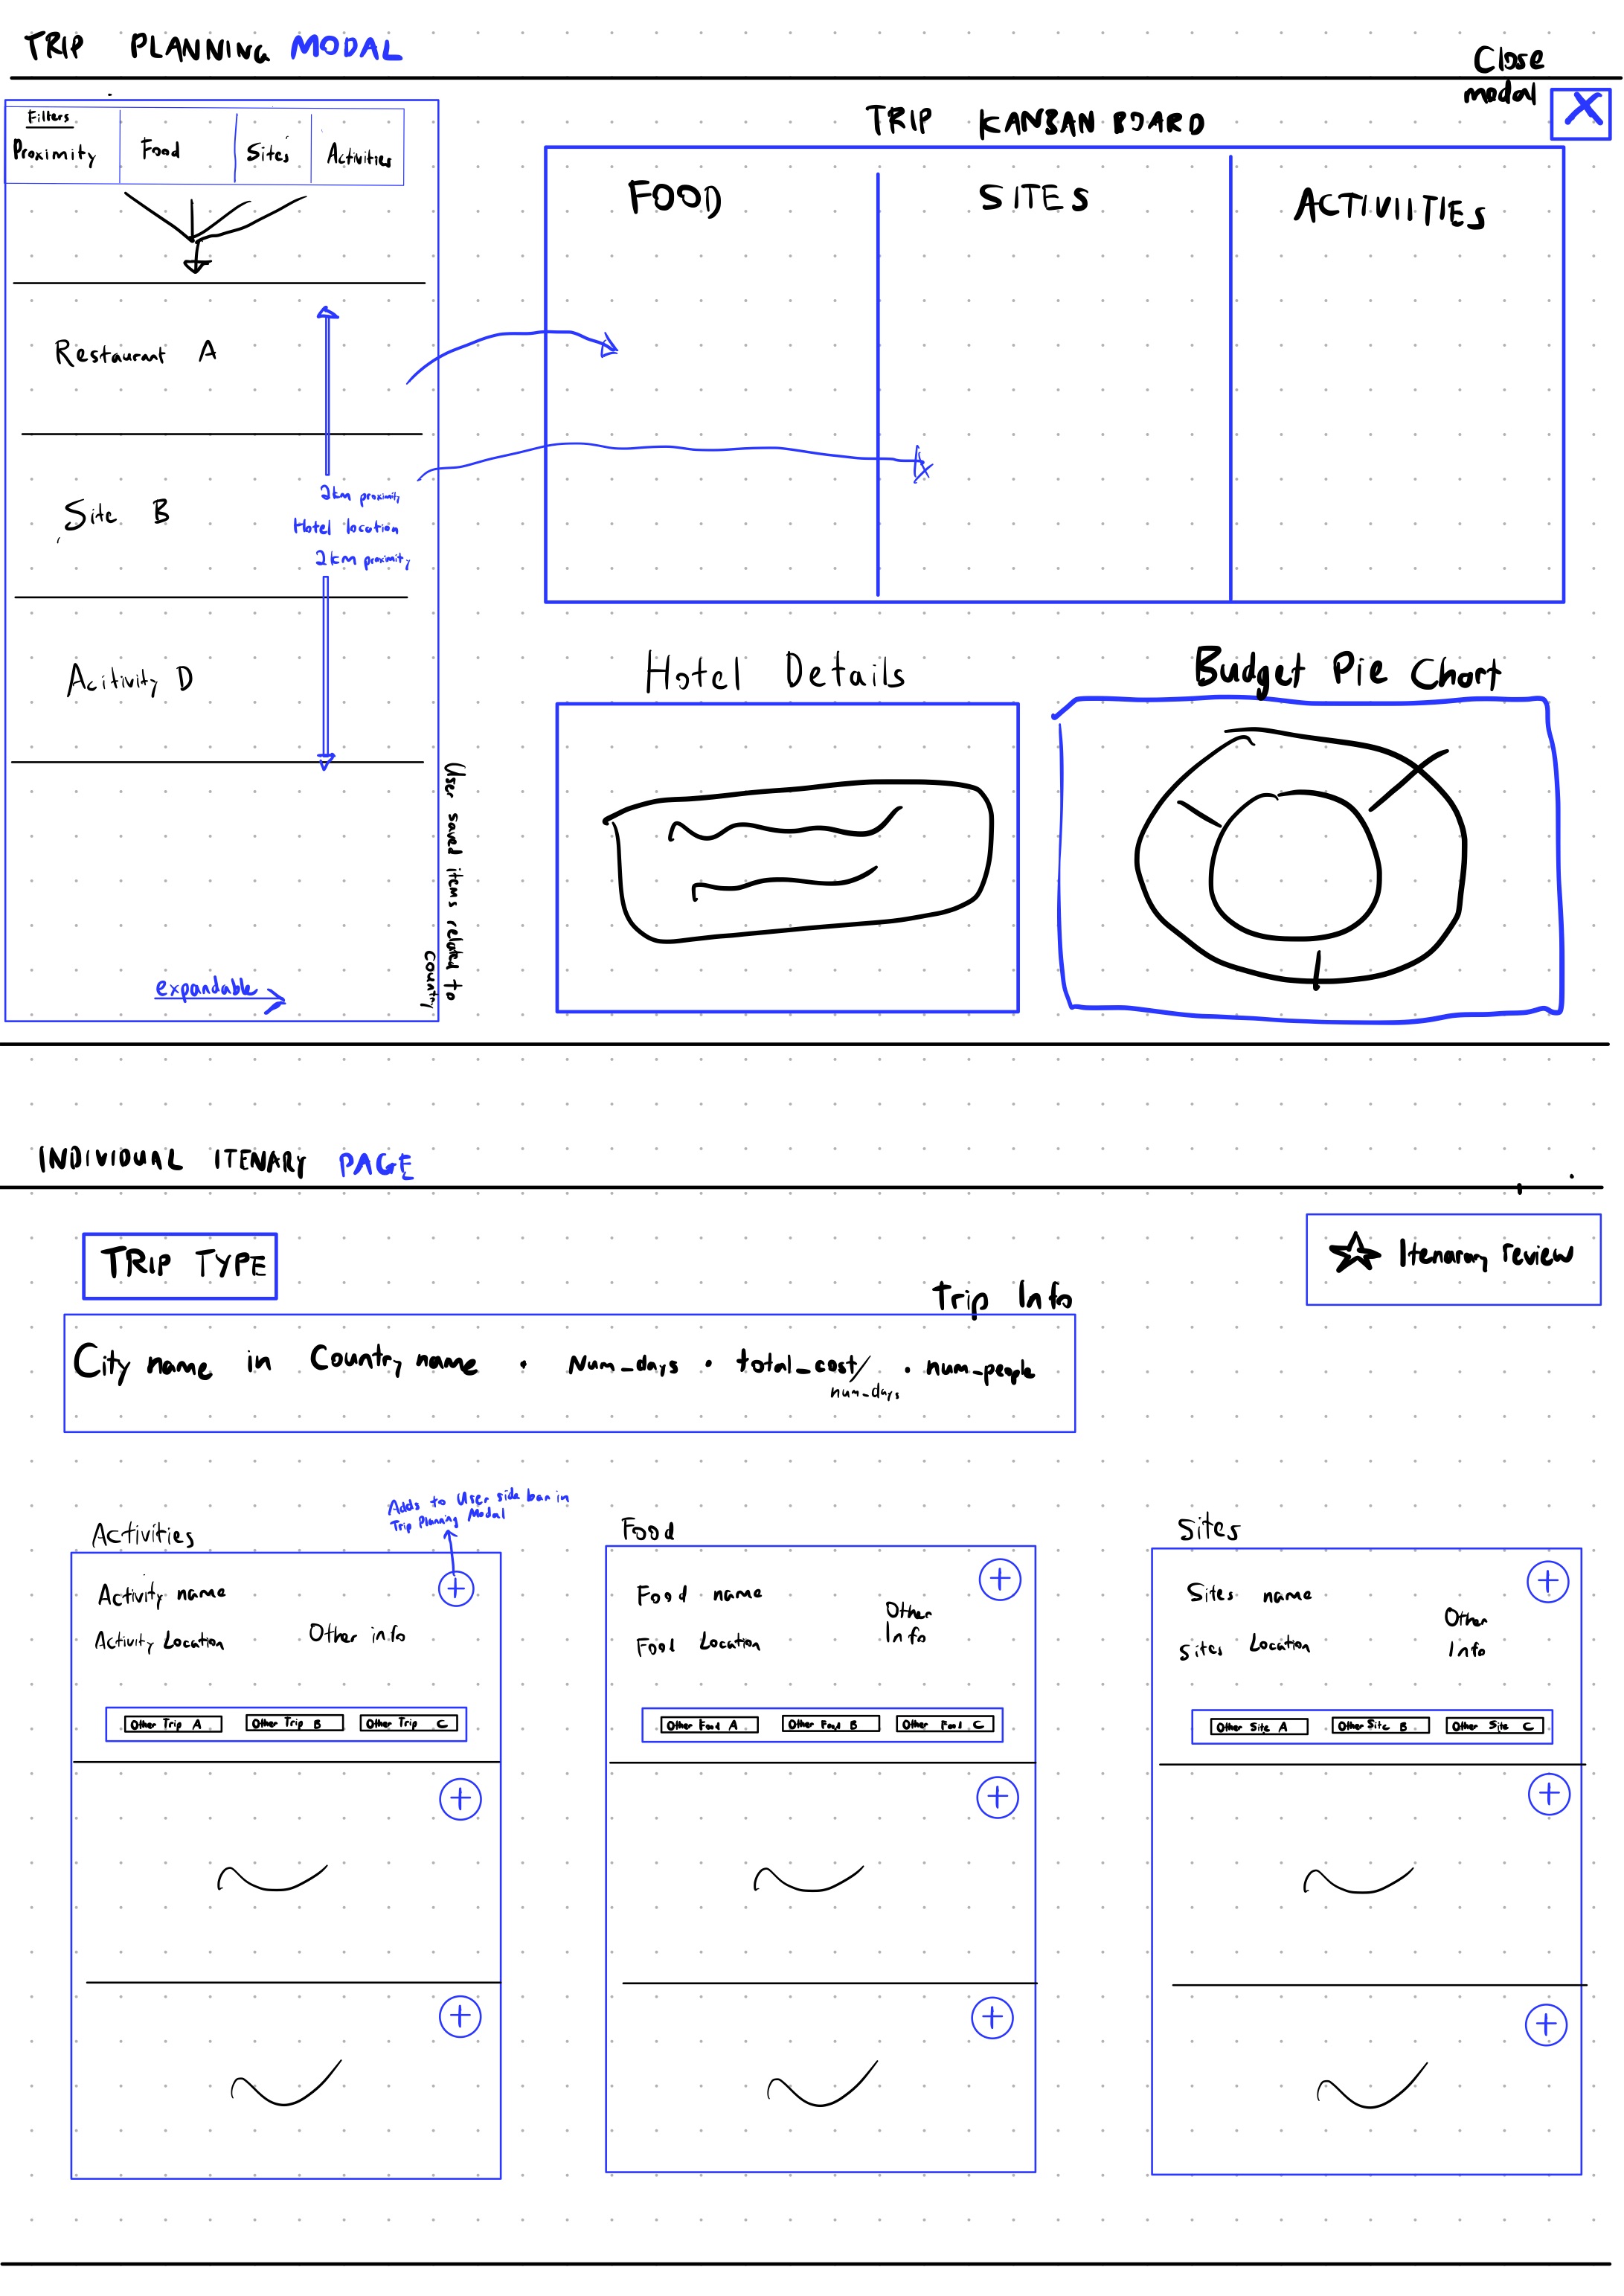 TRIP PLANNING MODAL
Close
modal
X
Filters
Proximity
Food
Sites
Activities
TRIP KANBAN BOARD
FOOD
SITES
ACTIVIITIES
Restaurant A
Site B
2km proximity
Hotel location
2km proximity
Acitivity D
User saved items related to
country
expandable
Hotel Details
Budget Pie Chart
INDIVIDUAL ITENARY PAGE
TRIP TYPE
Itenarary review
Trip Info
City name in Country name • Num_days • total_cost/ • num_people
num_days
Adds to User side bar in
Trip Planning Modal
Activities
Activity name
Activity Location
Other info
Other Trip A
Other Trip B
Other Trip C
Food
Food name
Food Location
Other
Info
Other Food A
Other Food B
Other Food C
Sites
Sites name
Sites Location
Other
Info
Other Site A
Other Site B
Other Site C